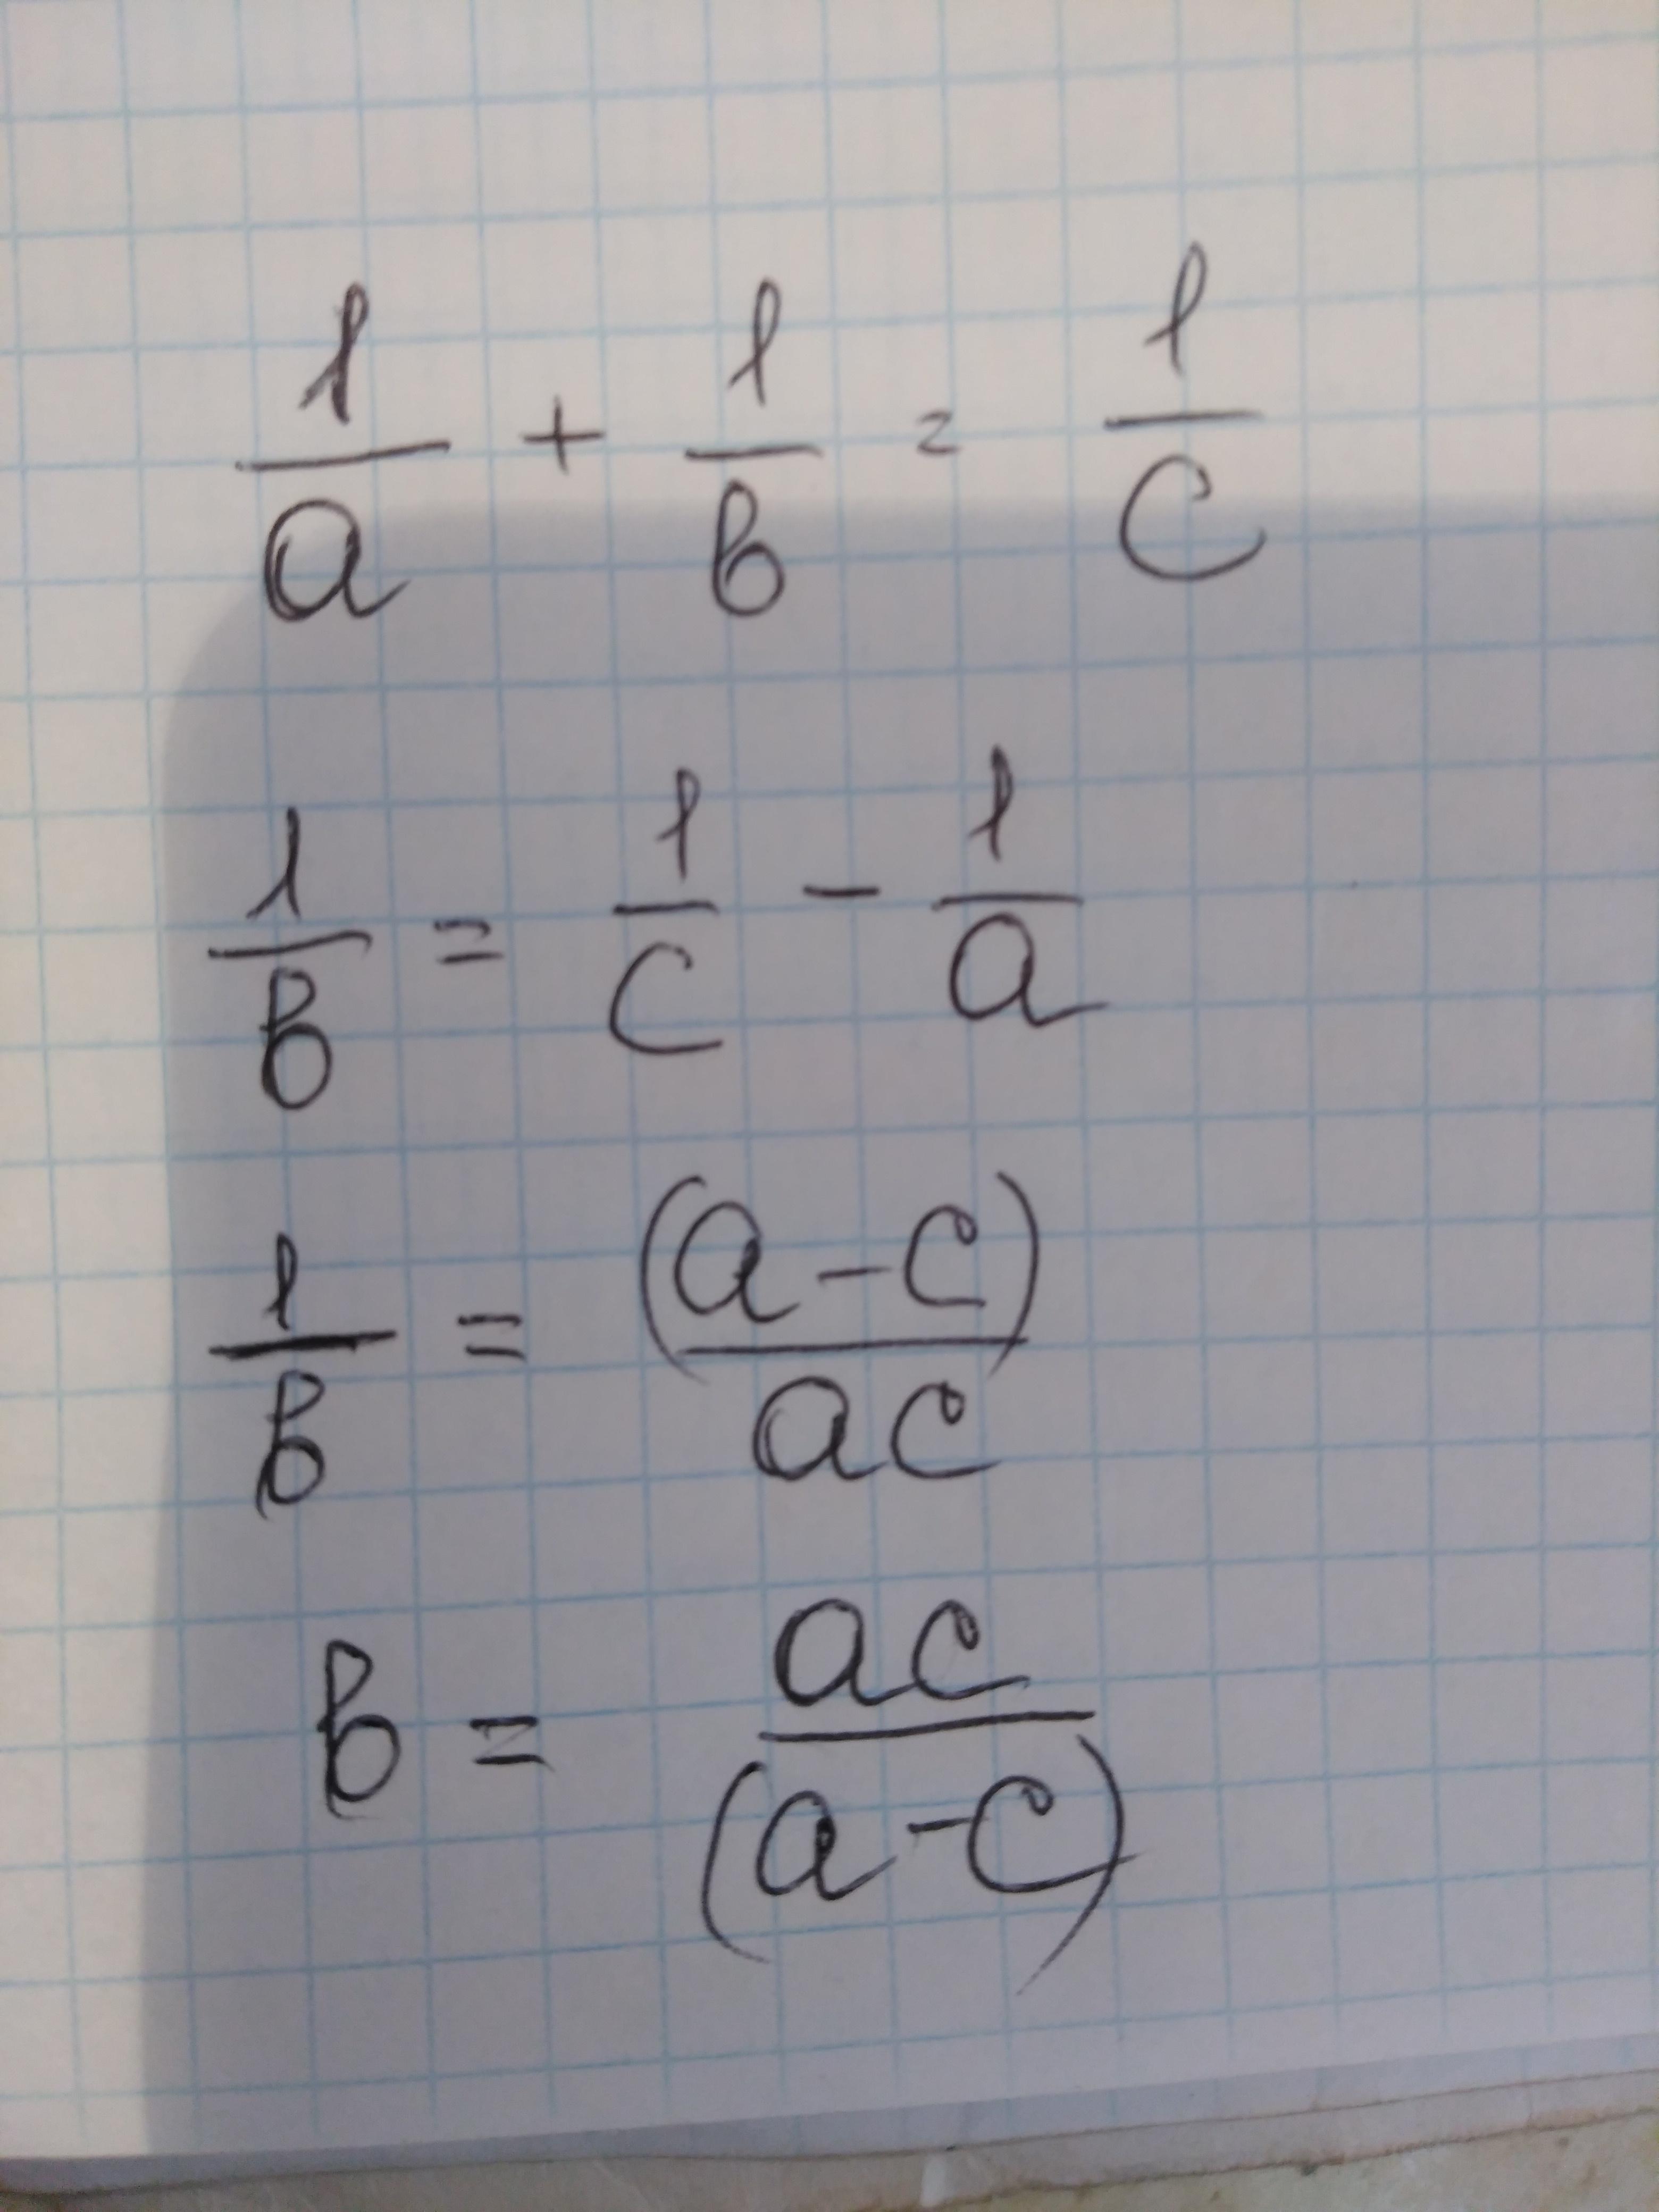 1/a + 1/b = 1/c
1/b = 1/c - 1/a
1/b = (a-c)/ac
b = ac/(a-c)